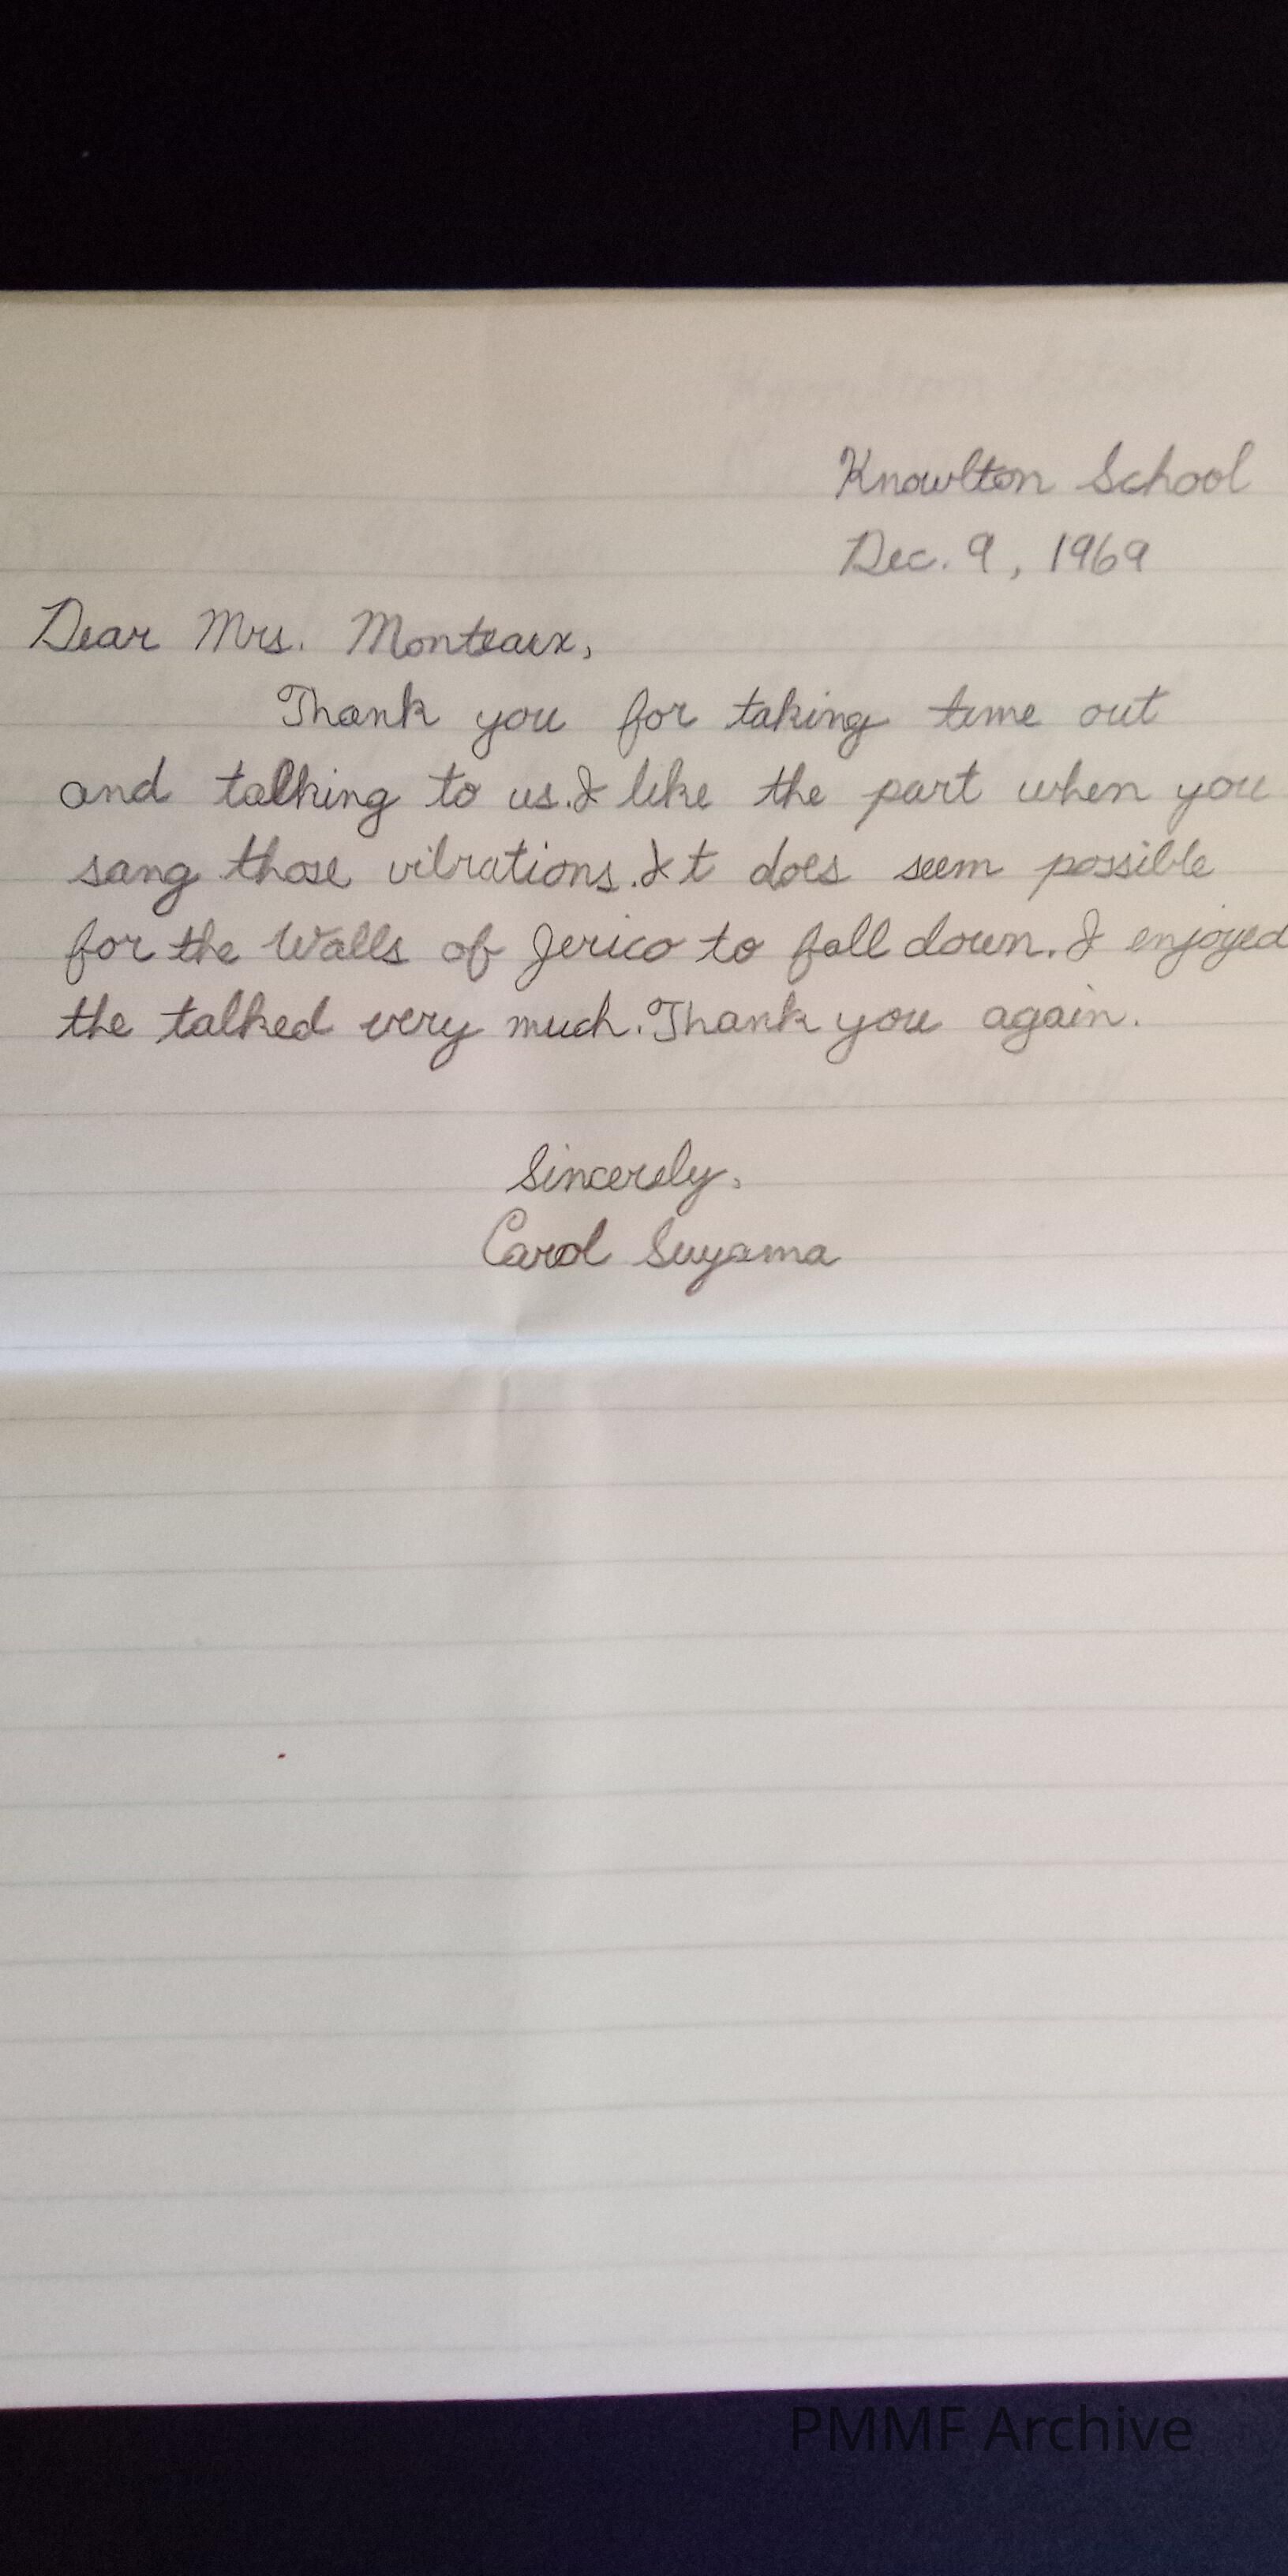 Knowlton School
Dec. 9, 1969
Dear Mrs. Monteaux,
Thank you for taking time out
and talking to us. I like the part when you
sang those vibrations. It does seem possible
for the Walls of Jerico to fall down. I enjoyed
the talked very much. Thank you again.
Sincerely,
Carol Suyama
PMMF Archive